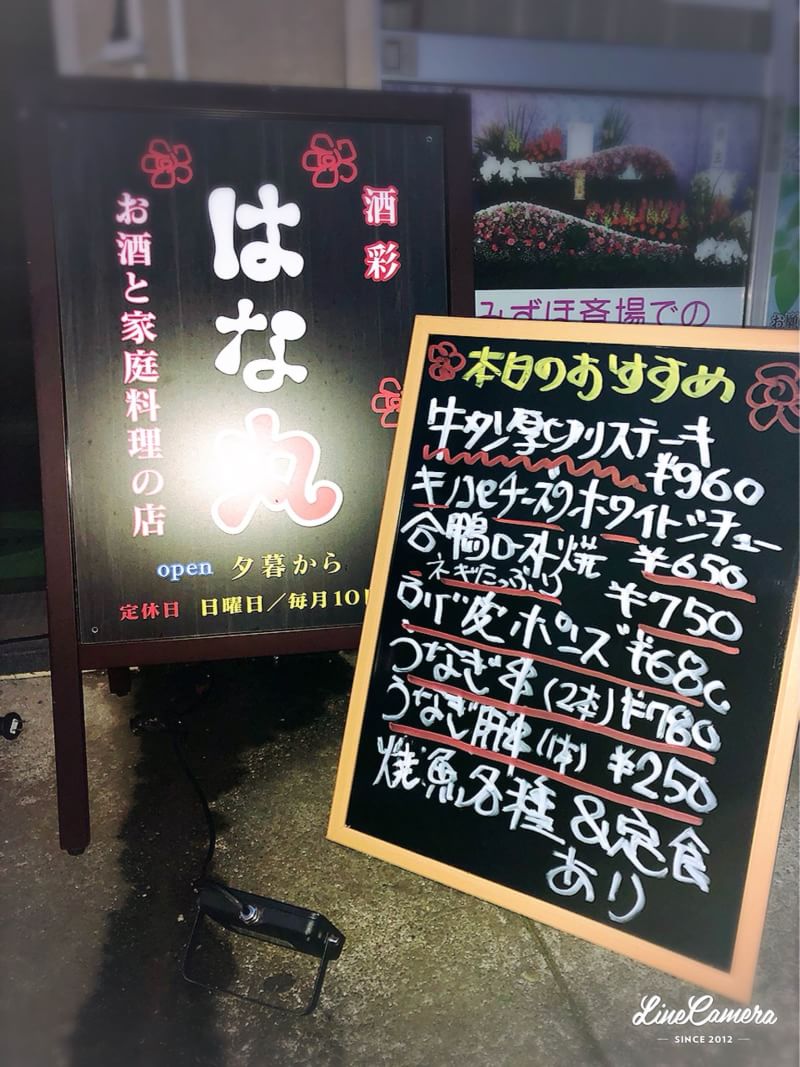 酒彩
はな丸
お酒と家庭料理の店
open 夕暮から
定休日 日曜日／毎月10
みずほ斎場での
本日のおすすめ
牛タン厚切りステーキ
¥960
キノコとチーズのホワイトシチュー
¥650
合鴨ロースト焼
ネギたっぷり ¥750
皮ポンズ ¥680
うなぎ串(2本) ¥780
うなぎ肝串(1本) ¥250
焼魚各種&定食
あり
LineCamera
SINCE 2012